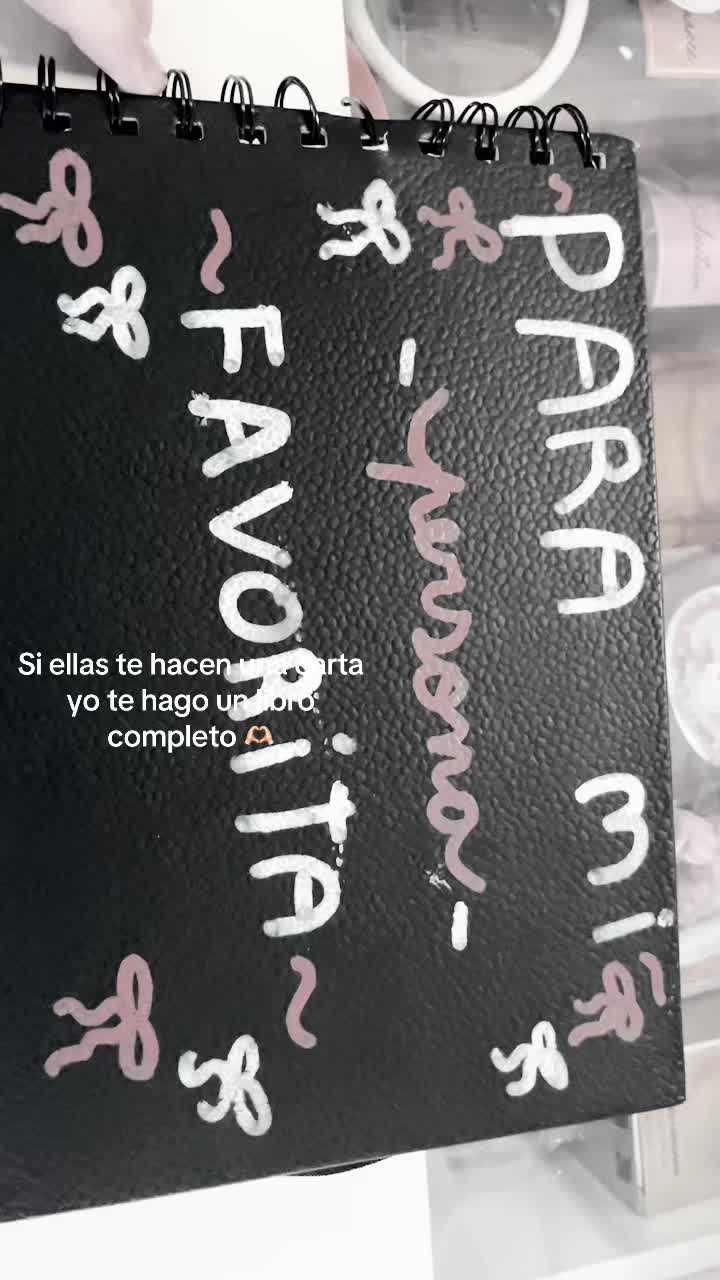 ~ PARA mi ~
- persona -
~ FAVORiTA ~
Si ellas te hacen una carta
yo te hago un libro
completo 🫶🏼